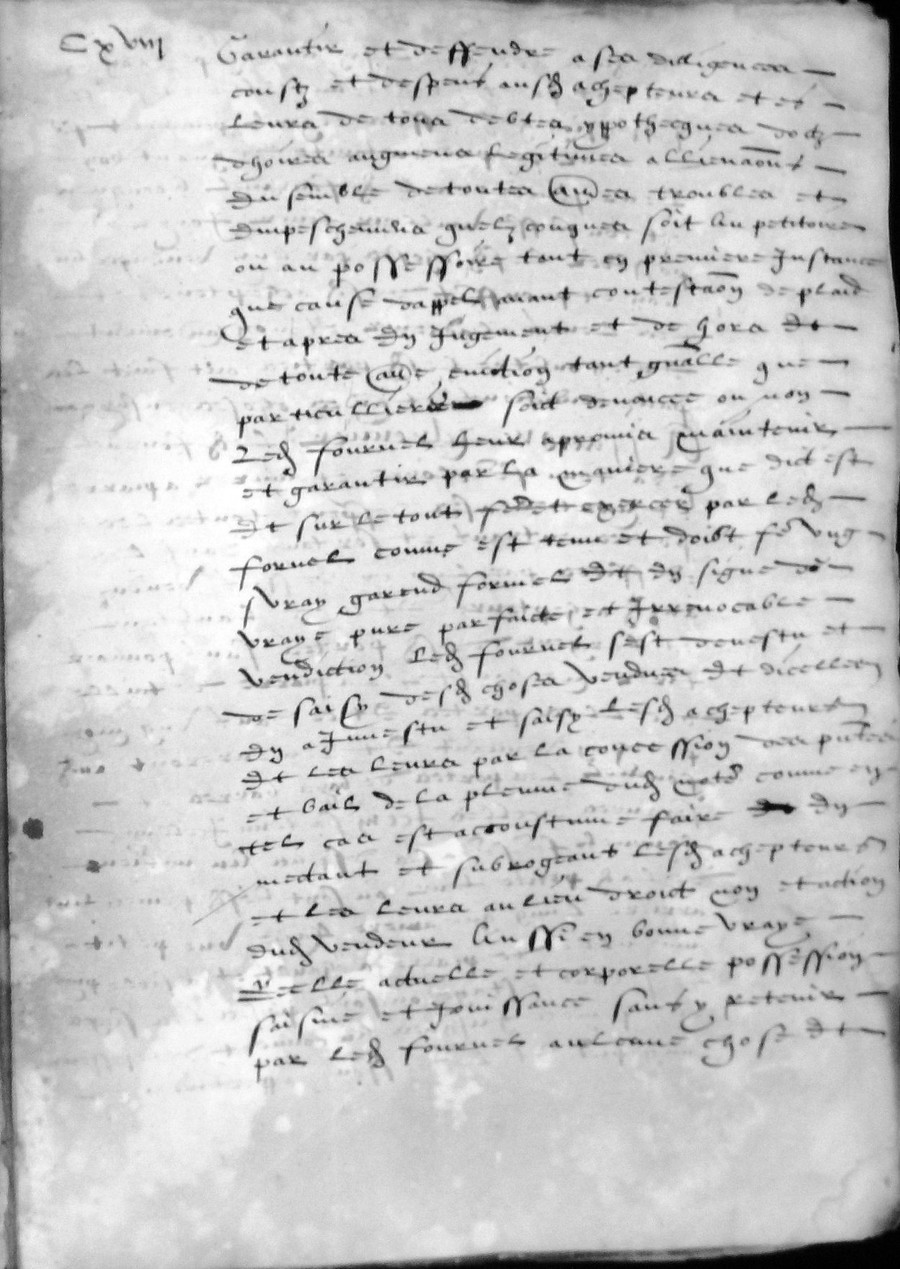 Cxviii
Garantir et deffendre a ses dilligences
coustz et despens ausd achepteurs et es
leurs de tous debtes ypothecques
dhoires legitimes allienaõns
Ensemble de toutes aues troubles et
Empeschemens quelzconques soit au petitoire
ou au possessoire tant en premiere Instance
que cause dappel avant contestaõn de plaid
Et apres En Jugement et de hors Et
de toute aue eviction tant gnalle que
particulliere soit denoncee ou non
Led fournel leur a promis maintenir
et garantir par la maniere que dict est
Et sur le tout exercer par led
fornel comme est tenu et doibt fe ung
vray garend formel Et En signe de
vraye pure parfaicte et Irrevocable
vendiction led fournel sest devestu et
de saisy desd choses vendues Et dicelles
En a Investu et saisy lesd achepteurs
Et les leurs par la concession des pntes
et bail de la plume dud comme en
tel cas est accoustume faire En
mectant et subrogeant lesd achepteurs
et les leurs au lieu droict non et action
dud vendeur Aussi en bonne vraye
Reelle actuelle et corporelle possession
saisine et Jouissance sans y retenir
par led fournel aulcune chose Et